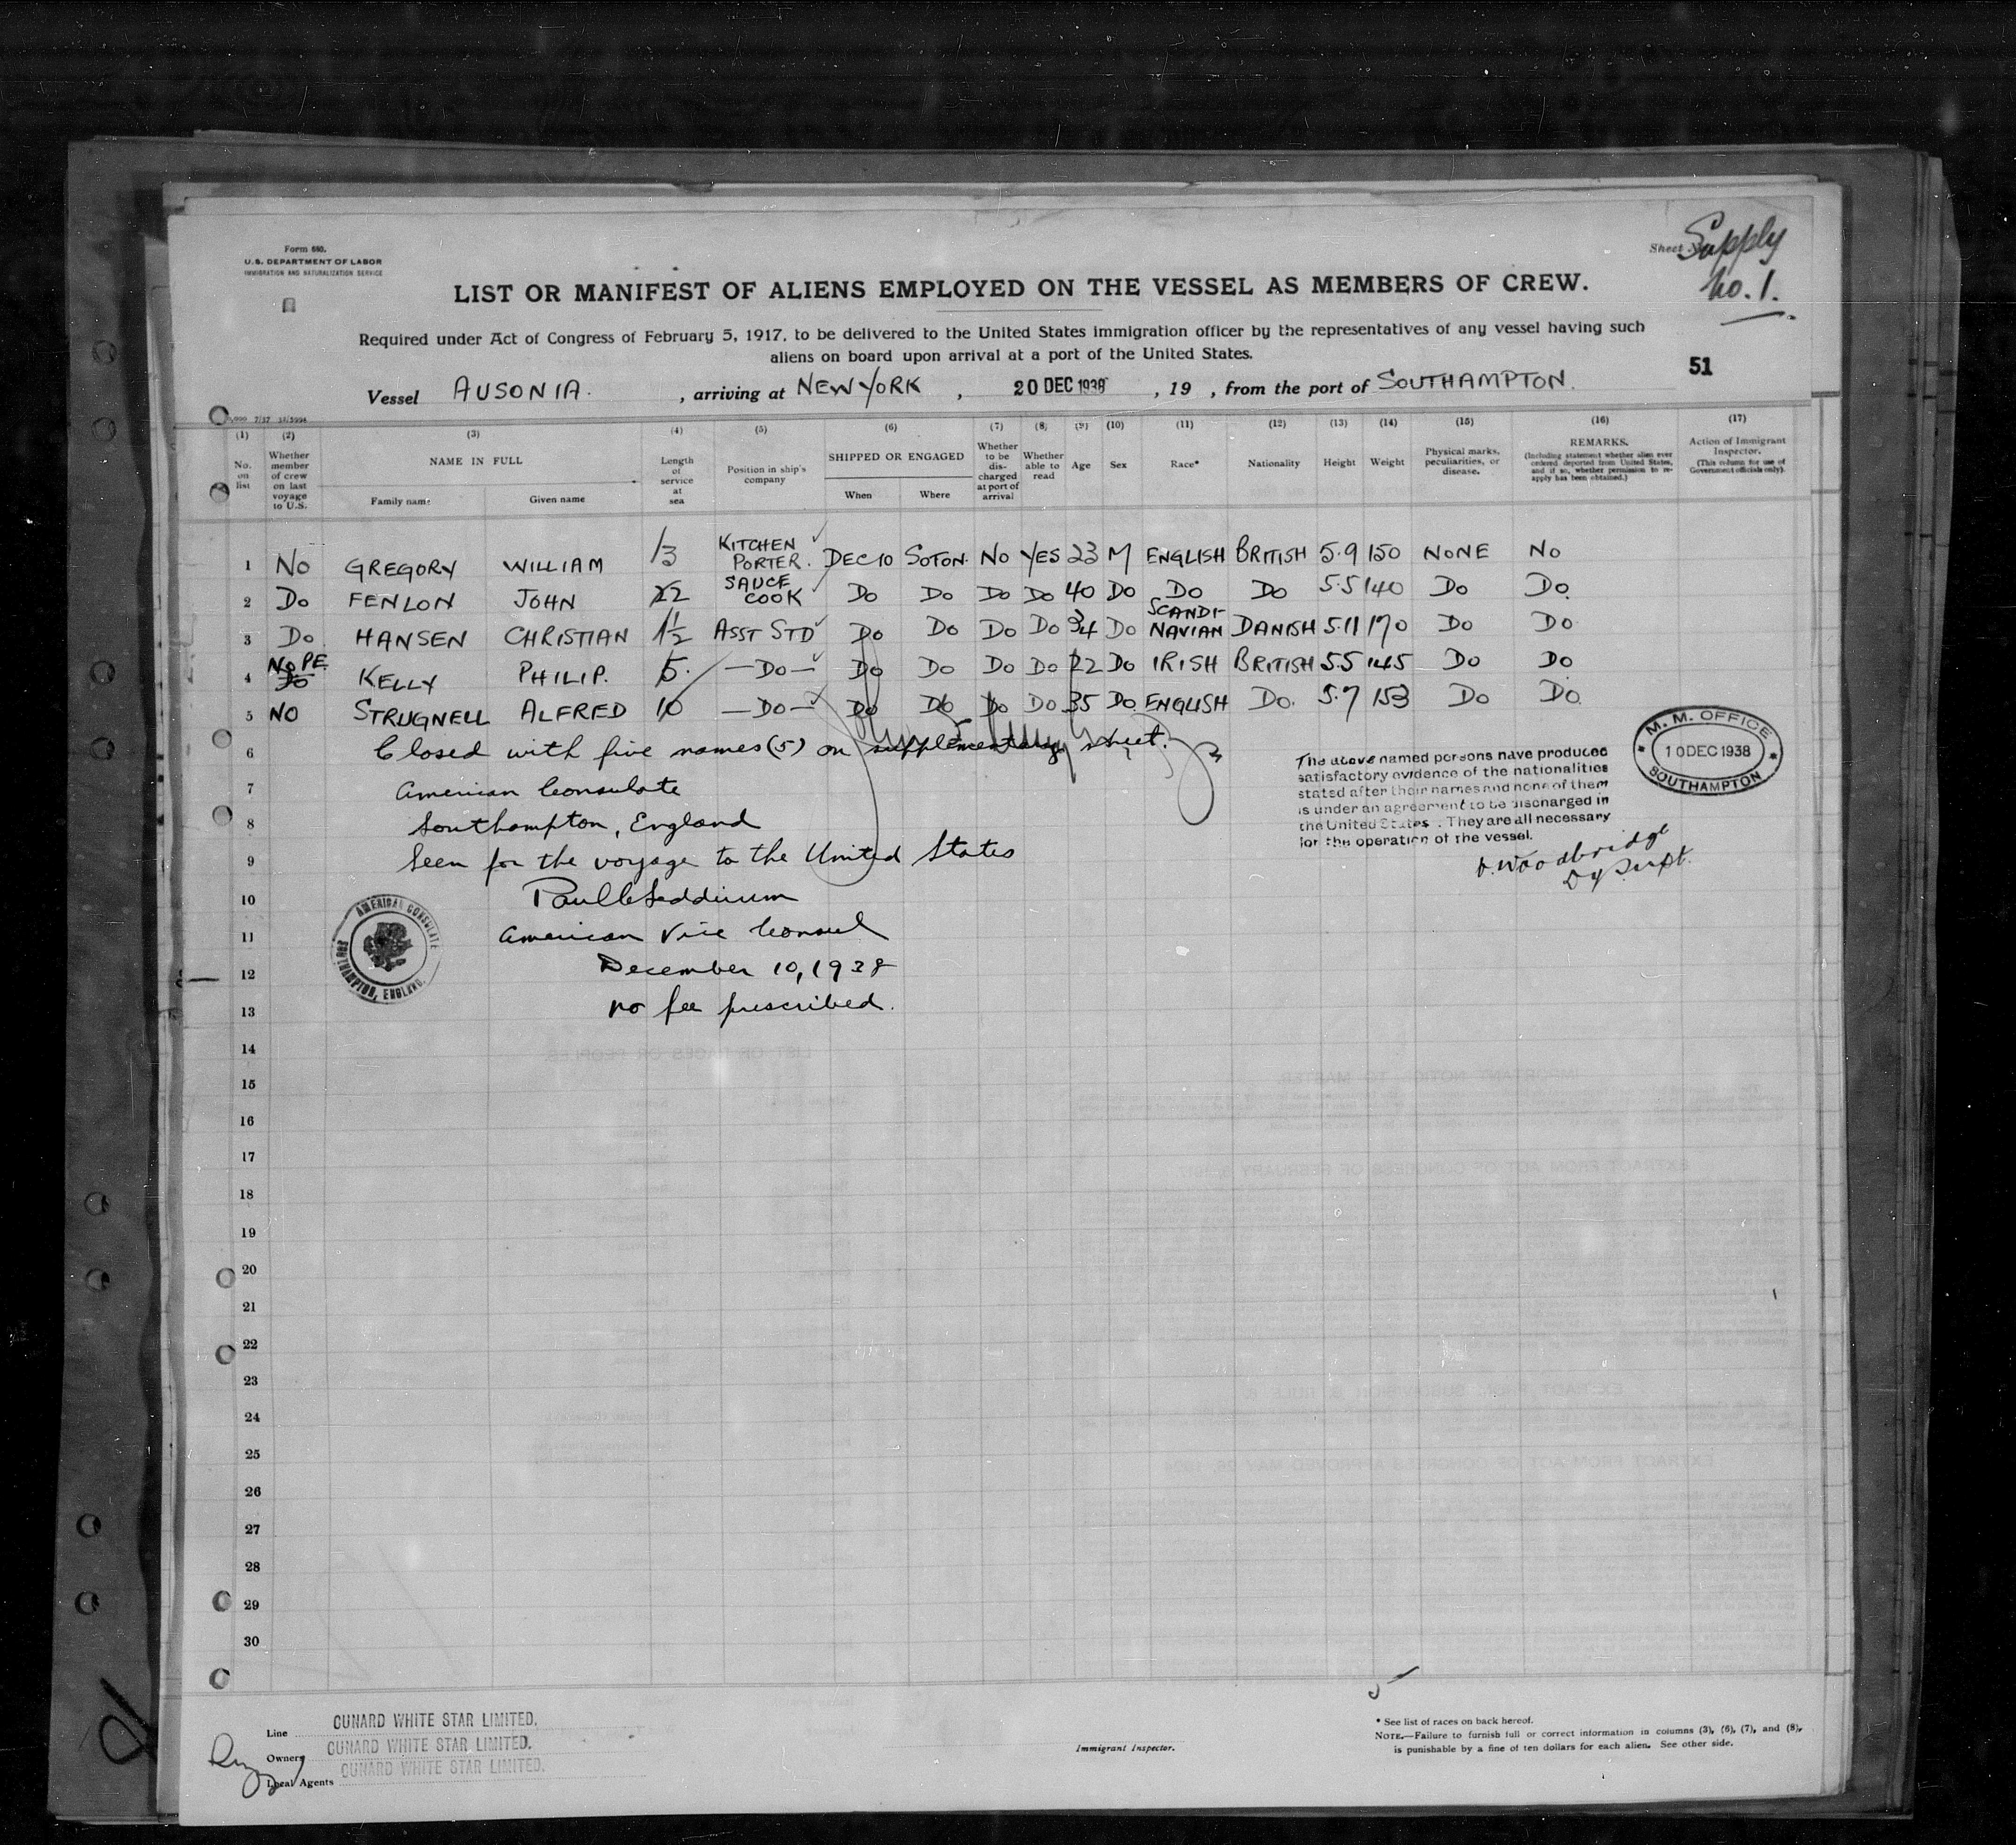 Form 680.
U.S. DEPARTMENT OF LABOR
IMMIGRATION AND NATURALIZATION SERVICE
Sheet Supply
No. 1.
LIST OR MANIFEST OF ALIENS EMPLOYED ON THE VESSEL AS MEMBERS OF CREW.
Required under Act of Congress of February 5, 1917, to be delivered to the United States immigration officer by the representatives of any vessel having such
aliens on board upon arrival at a port of the United States.
51
Vessel AUSONIA. , arriving at NEW YORK , 20 DEC 1938 , 19 , from the port of SOUTHAMPTON.
(1) (2) (3) (4) (5) (6) (7) (8) (9) (10) (11) (12) (13) (14) (15) (16) (17)
No. on list
Whether member of crew on last voyage to U.S.
NAME IN FULL
Family name Given name
Length of service at sea
Position in ship's company
SHIPPED OR ENGAGED
When Where
Whether to be discharged at port of arrival
Whether able to read
Age
Sex
Race*
Nationality
Height
Weight
Physical marks, peculiarities, or disease.
REMARKS.
(Including statement whether alien ever ordered deported from United States, and if so, whether permission to re-apply has been obtained.)
Action of Immigrant Inspector.
(This column for use of Government officials only).
1 NO GREGORY WILLIAM 1/3 KITCHEN PORTER. DEC 10 SOTON. NO YES 23 M ENGLISH BRITISH 5.9 150 NONE NO
2 DO FENLON JOHN 22 SAUCE COOK DO DO DO DO 40 DO DO DO 5.5 140 DO DO.
3 DO HANSEN CHRISTIAN 1½ ASST STD DO DO DO DO 34 DO SCANDI-NAVIAN DANISH 5.11 170 DO DO
4 NO PE. DO KELLY PHILIP. 5. —DO— DO DO DO DO 22 DO IRISH BRITISH 5.5 145 DO DO
5 NO STRUGNELL ALFRED 10 —DO— DO DO DO DO 35 DO. ENGLISH DO. 5.7 153 DO DO.
6 Closed with five names (5) on supplementary sheet.
7 American Consulate
8 Southampton, England
9 Seen for the voyage to the United States
10
11 American Vice Consul
12 December 10, 1938
13 no fee prescribed.
14
15
16
17
18
19
20
21
22
23
24
25
26
27
28
29
30
The above named persons have produced
satisfactory evidence of the nationalities
stated after their names and none of them
is under an agreement to be discharged in
the United States. They are all necessary
for the operation of the vessel.
D. Woodbridge
Dy Supt.
M. M. OFFICE
10 DEC 1938
SOUTHAMPTON
AMERICAN CONSULATE
SOUTHAMPTON, ENGLAND.
Line CUNARD WHITE STAR LIMITED.
Owners CUNARD WHITE STAR LIMITED.
Local Agents CUNARD WHITE STAR LIMITED.
Immigrant Inspector.
* See list of races on back hereof.
NOTE.—Failure to furnish full or correct information in columns (3), (6), (7), and (8),
is punishable by a fine of ten dollars for each alien. See other side.